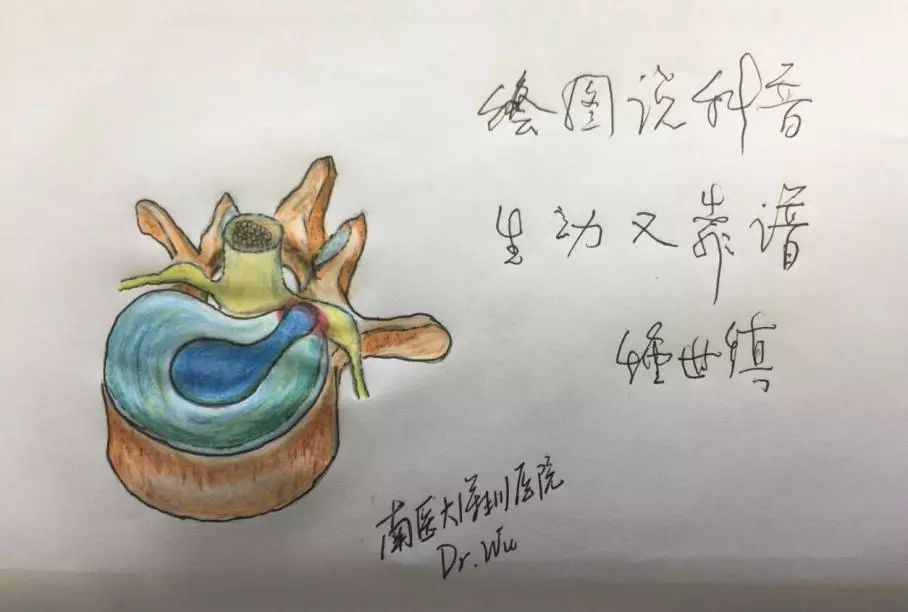 绘图说科普
生动又靠谱
锺世镇
南医大深圳医院
Dr. Wu